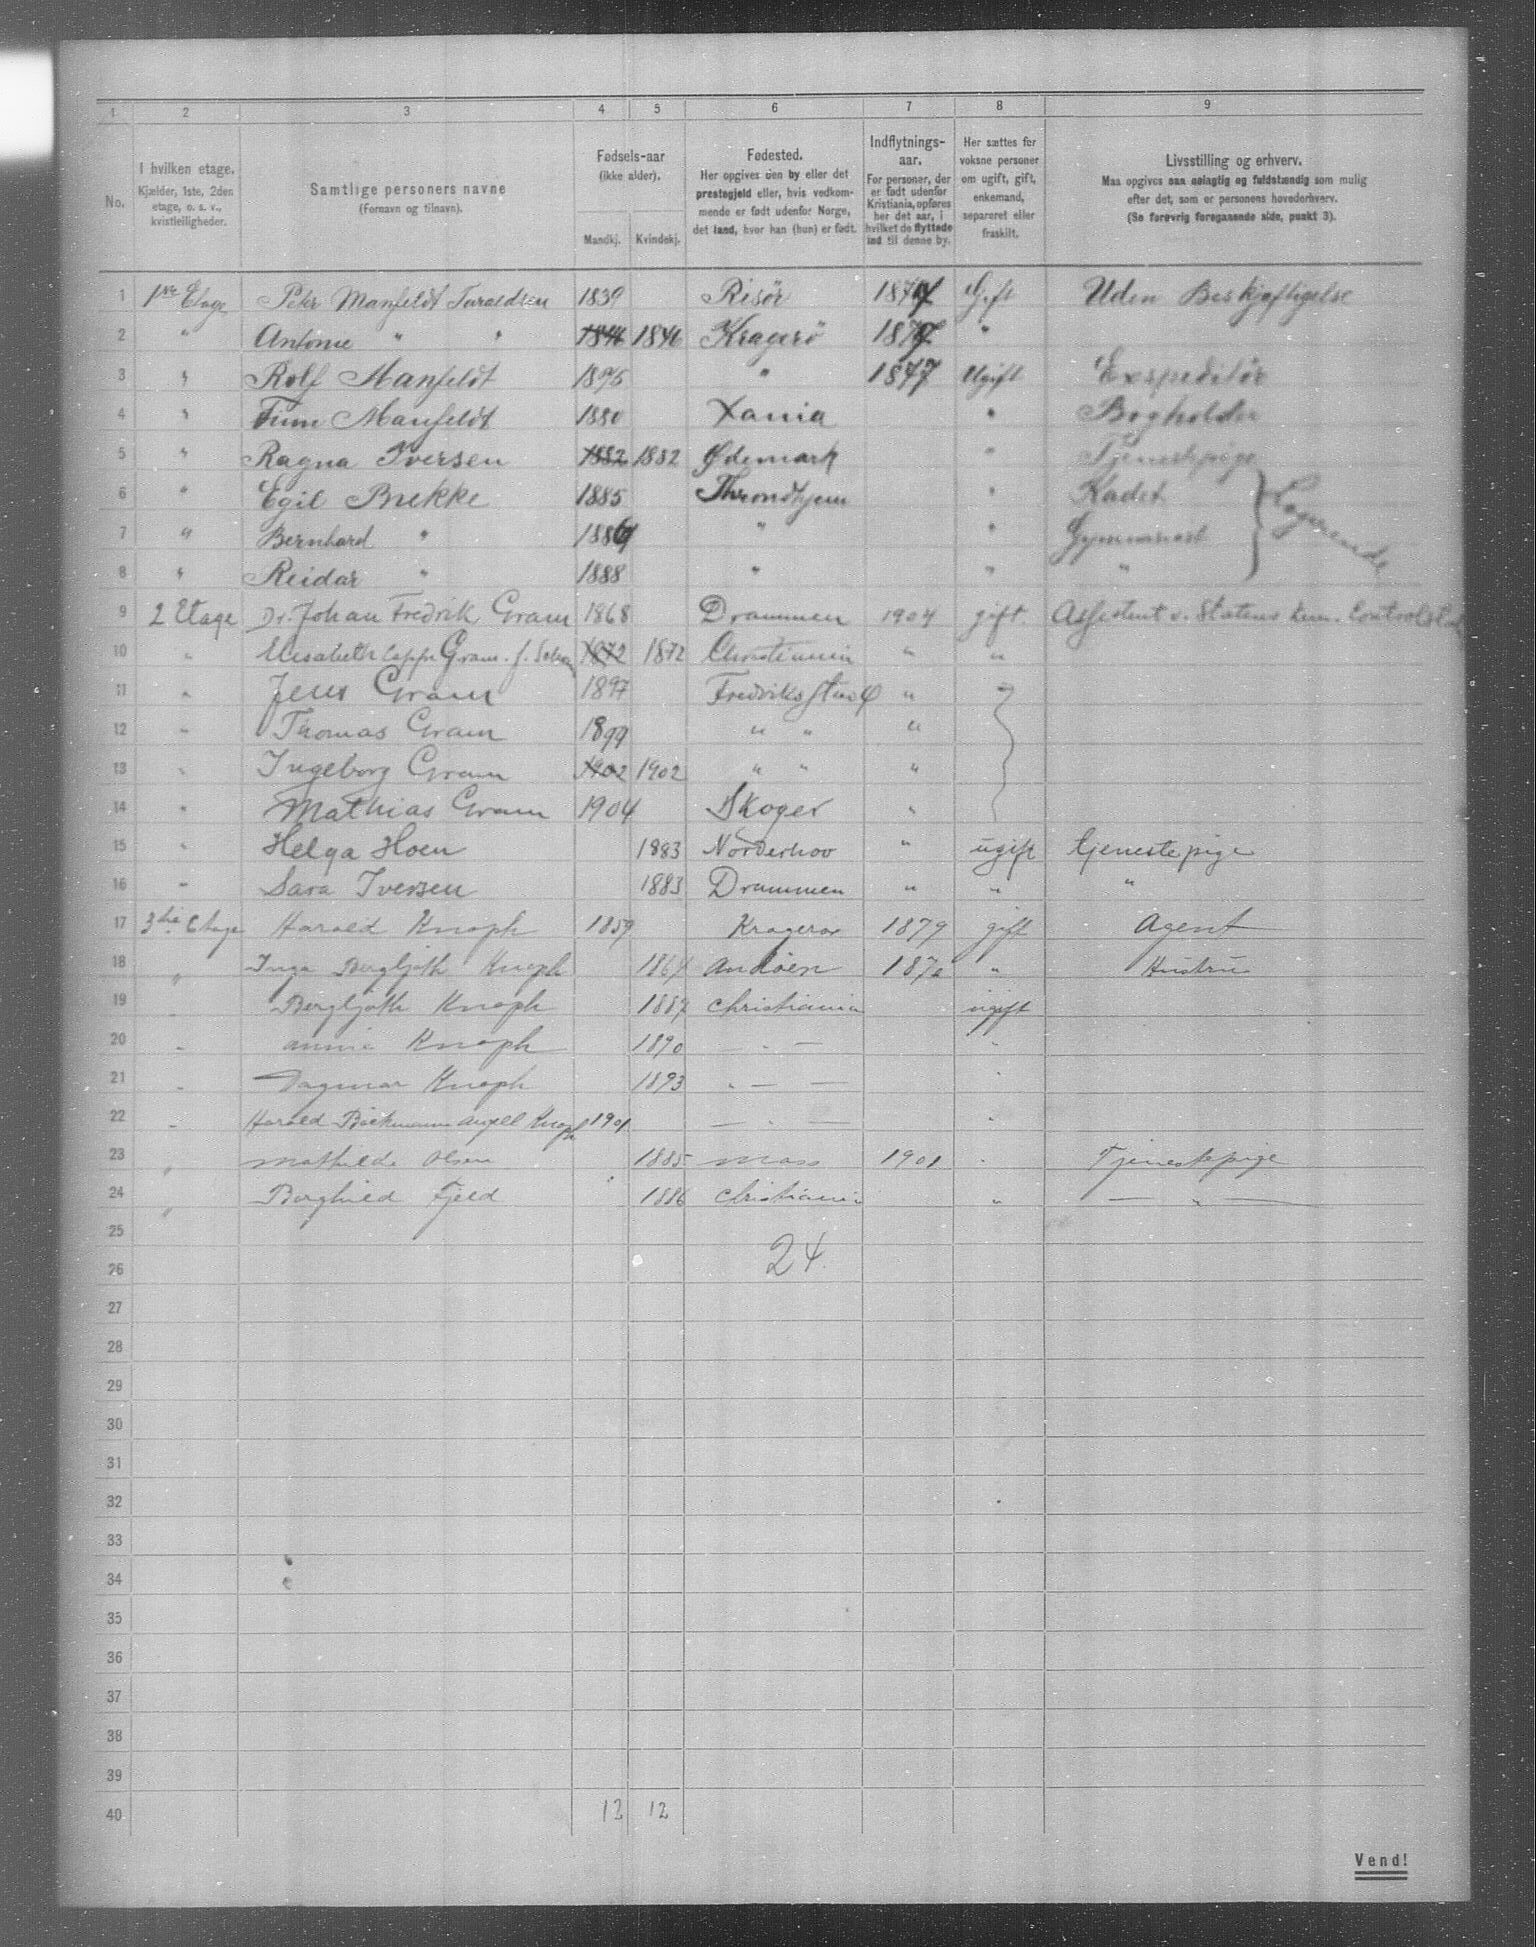 1 2 3 4 5 6 7 8 9
No.
I hvilken etage.
Kjælder, 1ste, 2den
etage, o. s. v.,
kvistleiligheder.
Samtlige personers navne
(Fornavn og tilnavn).
Fødsels-aar
(ikke alder).
Mandkj. Kvindekj.
Fødested.
Her opgives den by eller det
prestegjeld eller, hvis vedkom-
mende er født udenfor Norge,
det land, hvor han (hun) er født.
Indflytnings-
aar.
For personer, der
er født udenfor
Kristiania, opføres
her det aar, i
hvilket de flyttede
ind til denne by.
Her sættes for
voksne personer
om ugift, gift,
enkemand,
separeret eller
fraskilt.
Livsstilling og erhverv.
Maa opgives saa nøiagtig og fuldstændig som mulig
efter det, som er personens hovederhverv.
(Se forøvrig foregaaende side, punkt 3).
1 1ste Etage Peter Manfeldt Taraldsen 1839 Risör Gift Uden Beskjæftigelse
2 " Antonie " " 1846 Kragerö "
3 " Rolf Manfeldt " 1877 Ugift Expeditör
4 " Finn Manfeldt 1880 Xania " Bogholder
5 " Ragna Iversen 1882 1882 Ødemark " Tjenestepige
6 " Egil Brekke 1885 Throndhjem " Kadet } Logerende
7 " Bernhard " 1886 " " Gymnasiast
8 " Reidar " 1888 " " "
9 2 Etage Dr. Johan Fredrik Gram 1868 Drammen 1904 gift Assistent v. Statens kem. Controlst.
10 " Elisabeth Gram f. 1872 1872 Christiania " "
11 " Jens Gram 1897 Fredriksstad "
12 " Thomas Gram 1899 " " "
13 " Ingeborg Gram 1902 1902 " " "
14 " Mathias Gram 1904 Skoger "
15 " Helga Hoen 1883 Norderhov " ugift tjenestepige
16 " Sara Iversen 1883 Drammen " " "
17 3die Etage Harald Knoph 1859 Kragerø 1879 gift Agent
18 " Inga Bergljoth Knoph 1864 Andøen 1870 " Hustru
19 " Bergljoth Knoph 1887 Christiania ugift
20 " Annie Knoph 1890 — " — "
21 " Dagmar Knoph 1893 " — — "
22 " Harald Böckmann Knoph 1901 — " — "
23 " Mathilde Olsen 1885 Moss 1901 " Tjenestepige
24 " Borghild Fjeld 1886 Christiania " — " —
25
24
26
27
28
29
30
31
32
33
34
35
36
37
38
39
40 12 12
Vend!